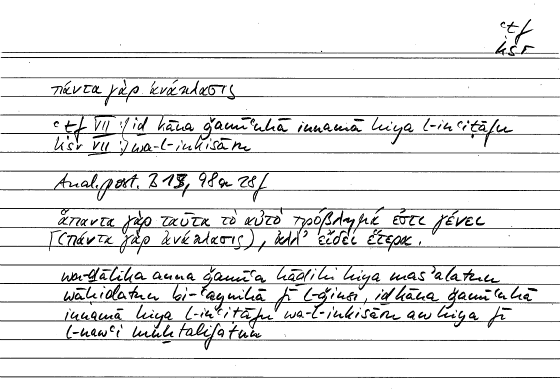 ʿṭf
ksr
πάντα γὰρ ἀνάκλασις
ʿṭf VII (iḏ kāna ǧamīʿuhā innamā hiya l-inʿiṭāfu
ksr VII ) wa-l-inkisāru
Anal. post. B 15, 98a 28f
ἅπαντα γὰρ ταῦτα τὸ αὐτὸ πρόβλημά ἐστι γένει
[(πάντα γὰρ ἀνάκλασις), ἀλλ’ εἴδει ἕτερα.
wa-ḏālika anna ǧamīʿa hāḏihi hiya masʾalatun
wāḥidatun bi-ʿaynihā fī l-ǧinsi, iḏ kāna ǧamīʿuhā
innamā hiya l-inʿiṭāfu wa-l-inkisāru aw hiya fī
l-nawʿi muḫtalifatun